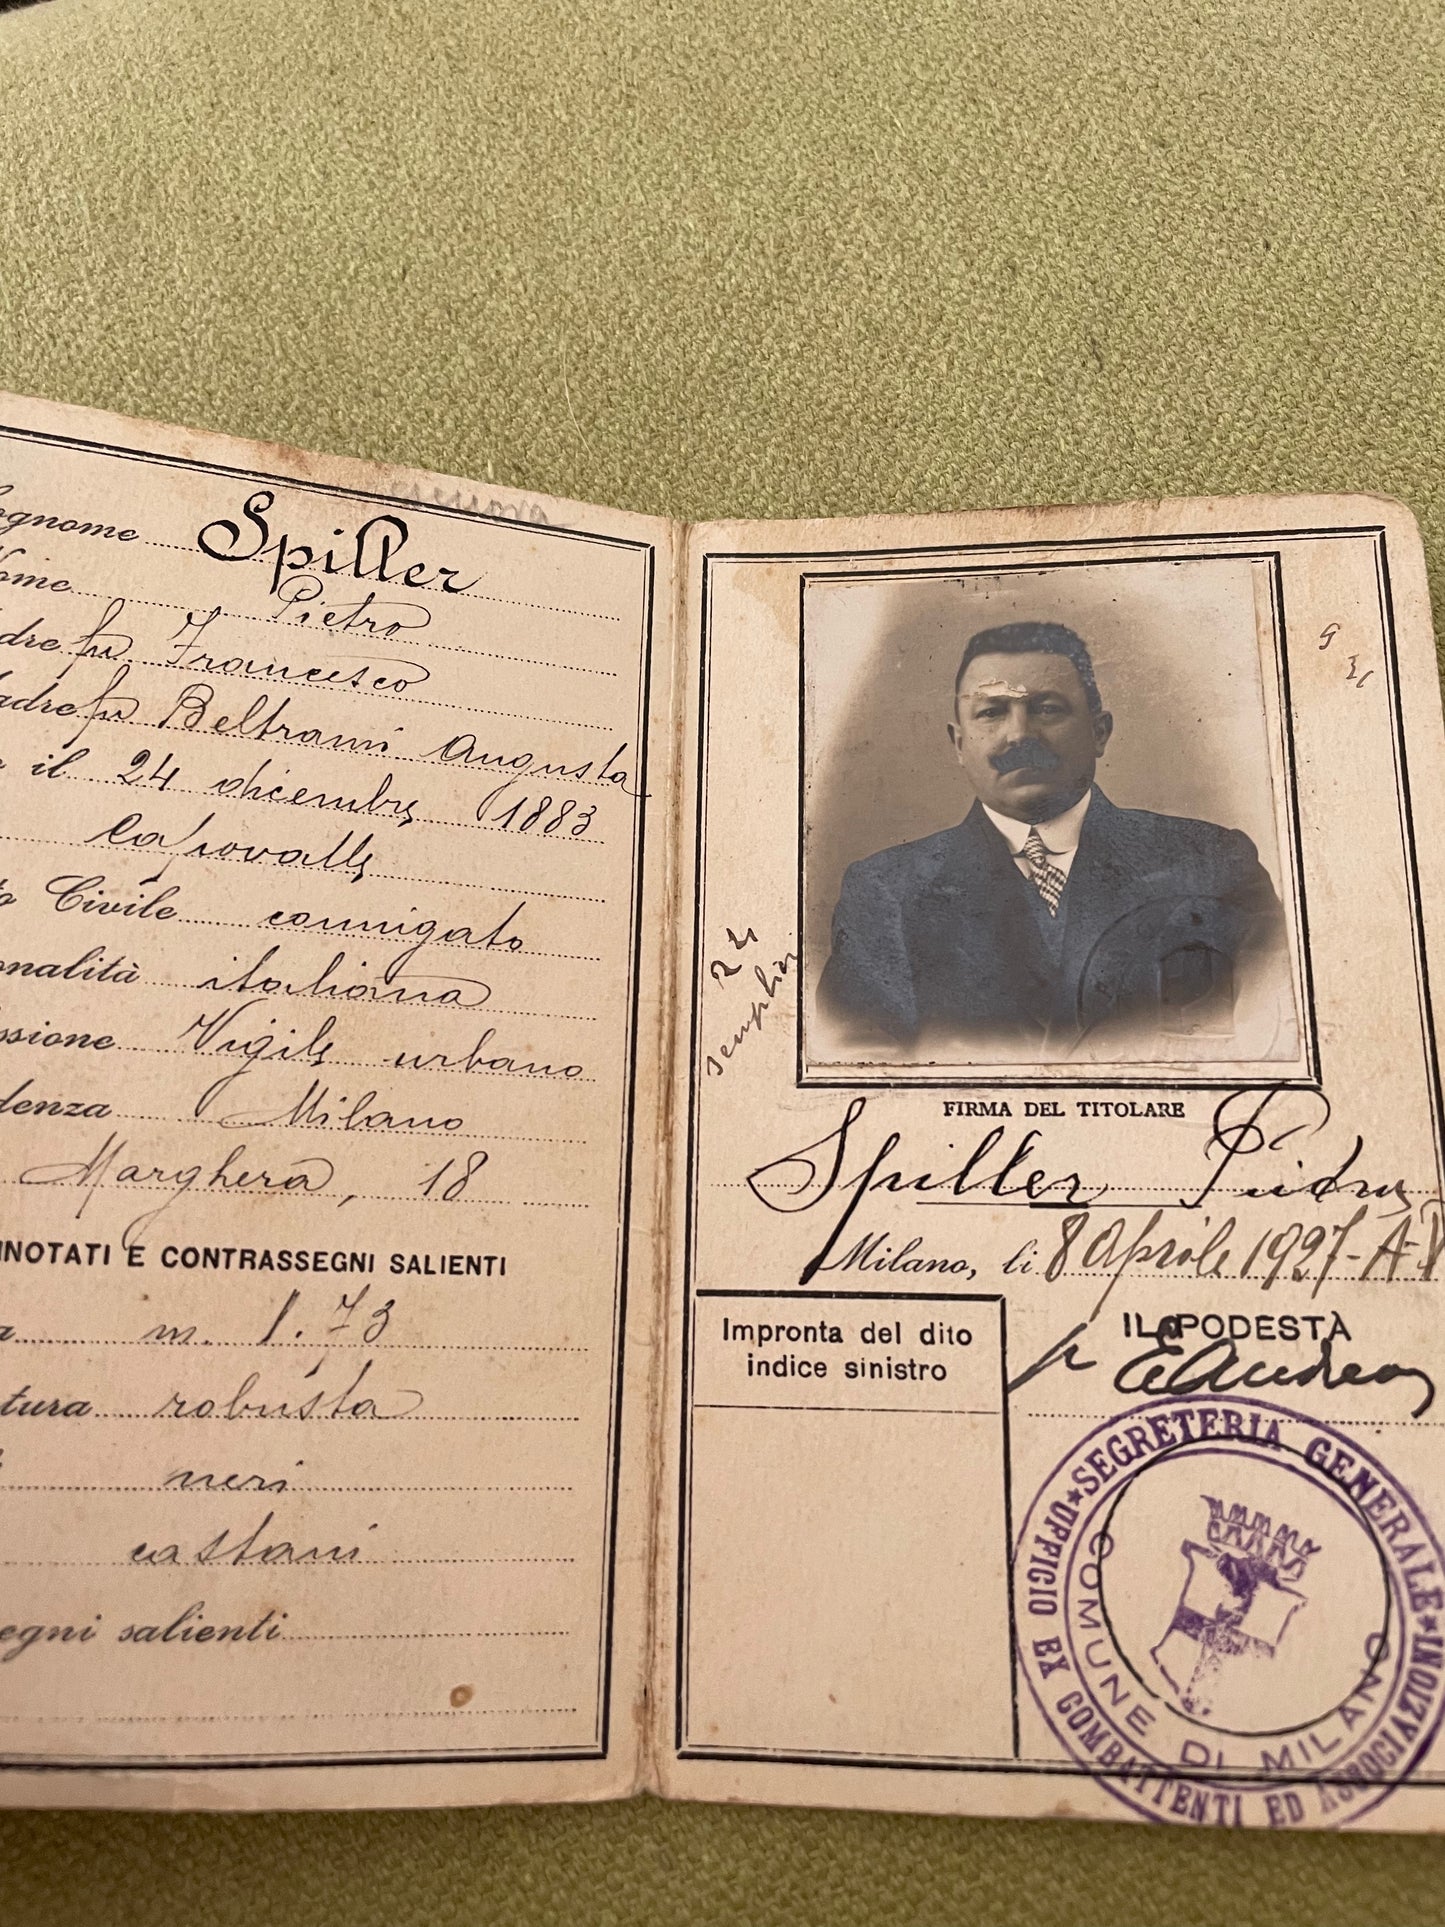 ognome Spiller
Nome Pietro
adre fu Francesco
adre fu Beltrami Augusta
il 24 dicembre 1883
Civile coniugato
onalità italiana
ssione Vigile urbano
denza Milano
Marghera, 18
NNOTATI E CONTRASSEGNI SALIENTI
m. 1.73
tura robusta
neri
castani
egni salienti
FIRMA DEL TITOLARE
Spiller Pietro
Milano, li 8 Aprile 1927-A-V
Impronta del dito
indice sinistro
IL PODESTÀ
SEGRETERIA GENERALE
UFFICIO EX COMBATTENTI ED ASSOCIAZIONI
COMUNE DI MILANO